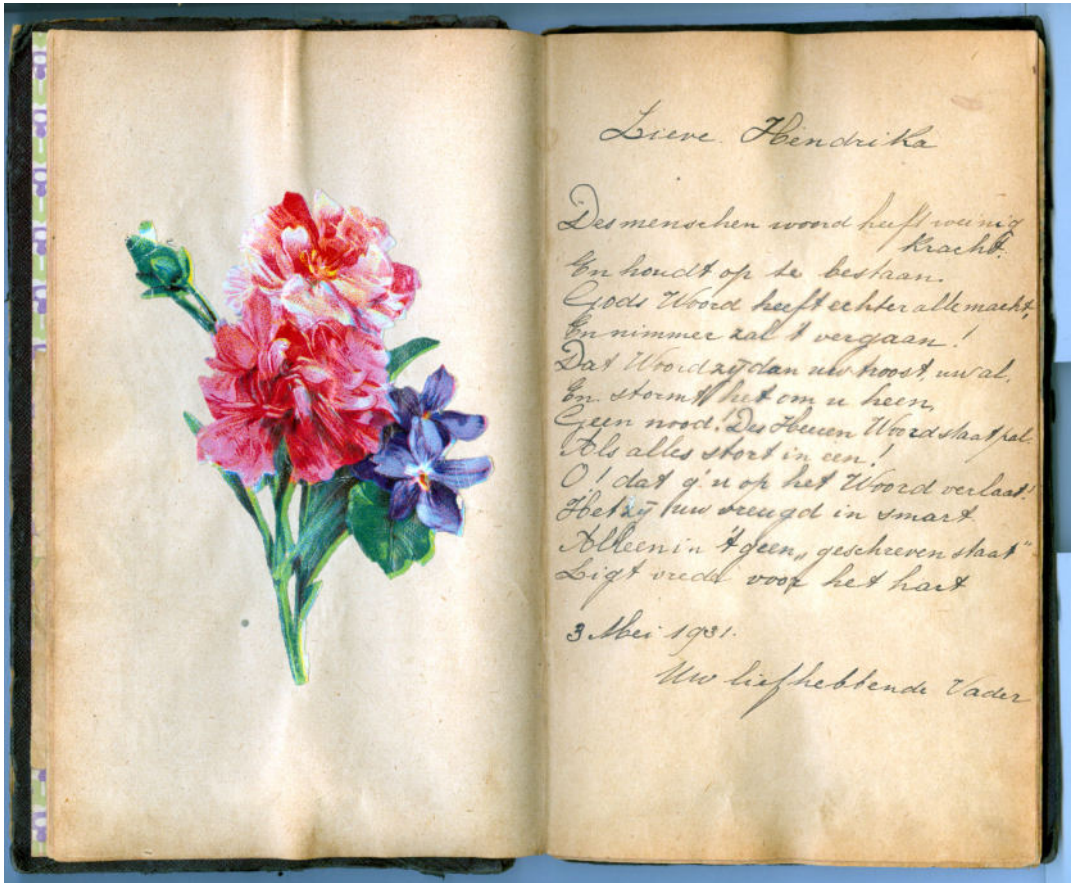 Lieve Hendrika
Des menschen woord heeft weinig
kracht.
En houdt op te bestaan.
Gods Woord heeft echter alle macht,
En nimmer zal 't vergaan!
Dat Woord zij dan uw troost, uw al.
En stormt het om u heen,
Geen nood! Des Heeren Woord staat pal.
Als alles stort in een!
O! dat g' u op het Woord verlaat!
Het zij uw vreugd in smart
Alleen in 't geen „geschreven staat"
Ligt vrede voor het hart
3 Mei 1931.
Uw liefhebbende Vader